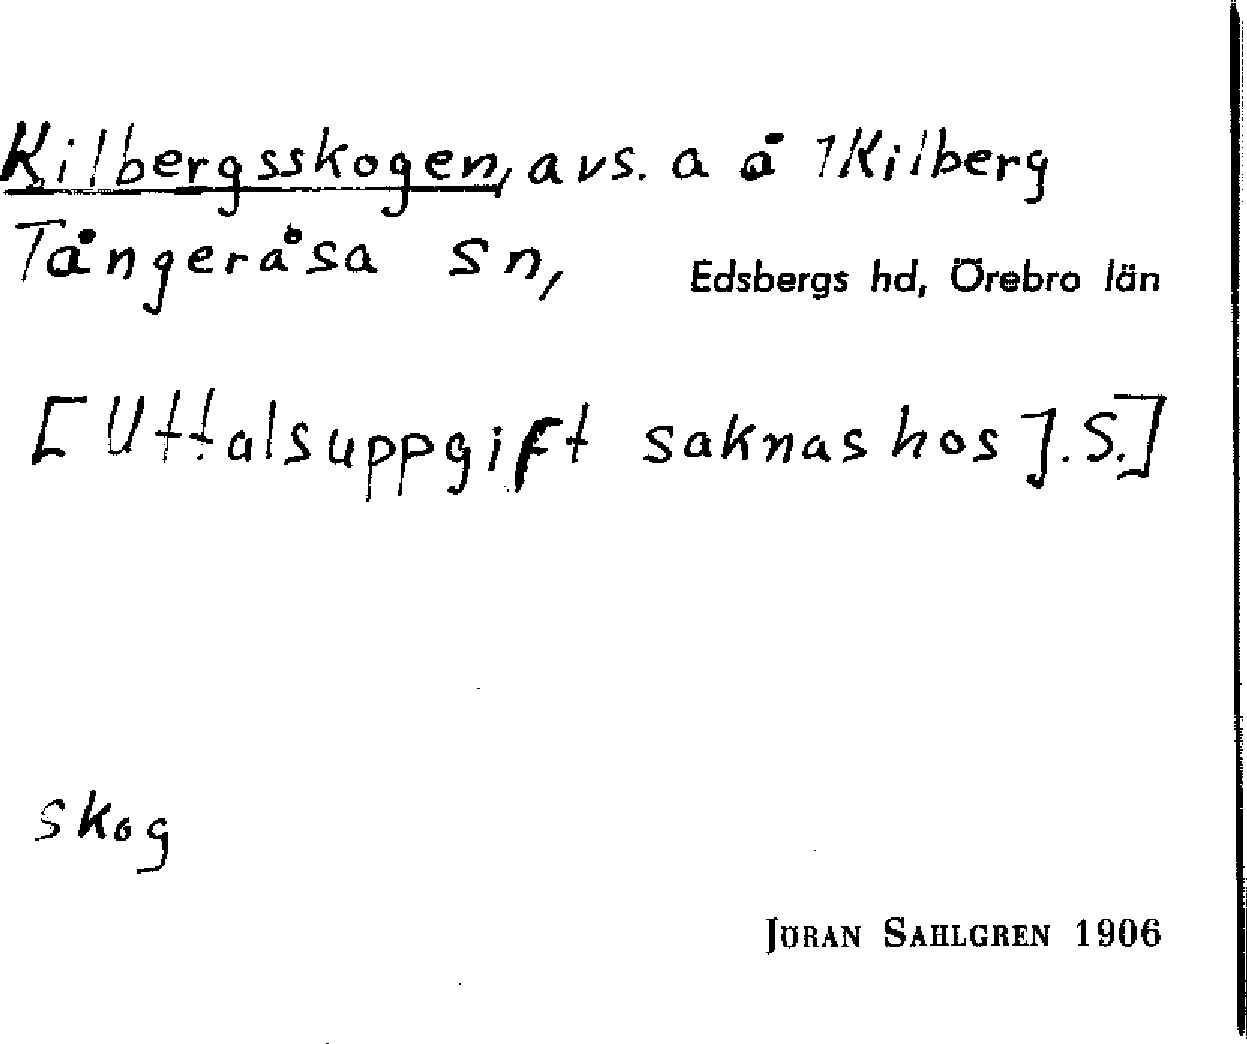 Kilbergsskogen, avs. a å 1 Kilberg
Tångeråsa sn, Edsbergs hd, Örebro län
[Uttalsuppgift saknas hos J.S.]
skog
JÖRAN SAHLGREN 1906